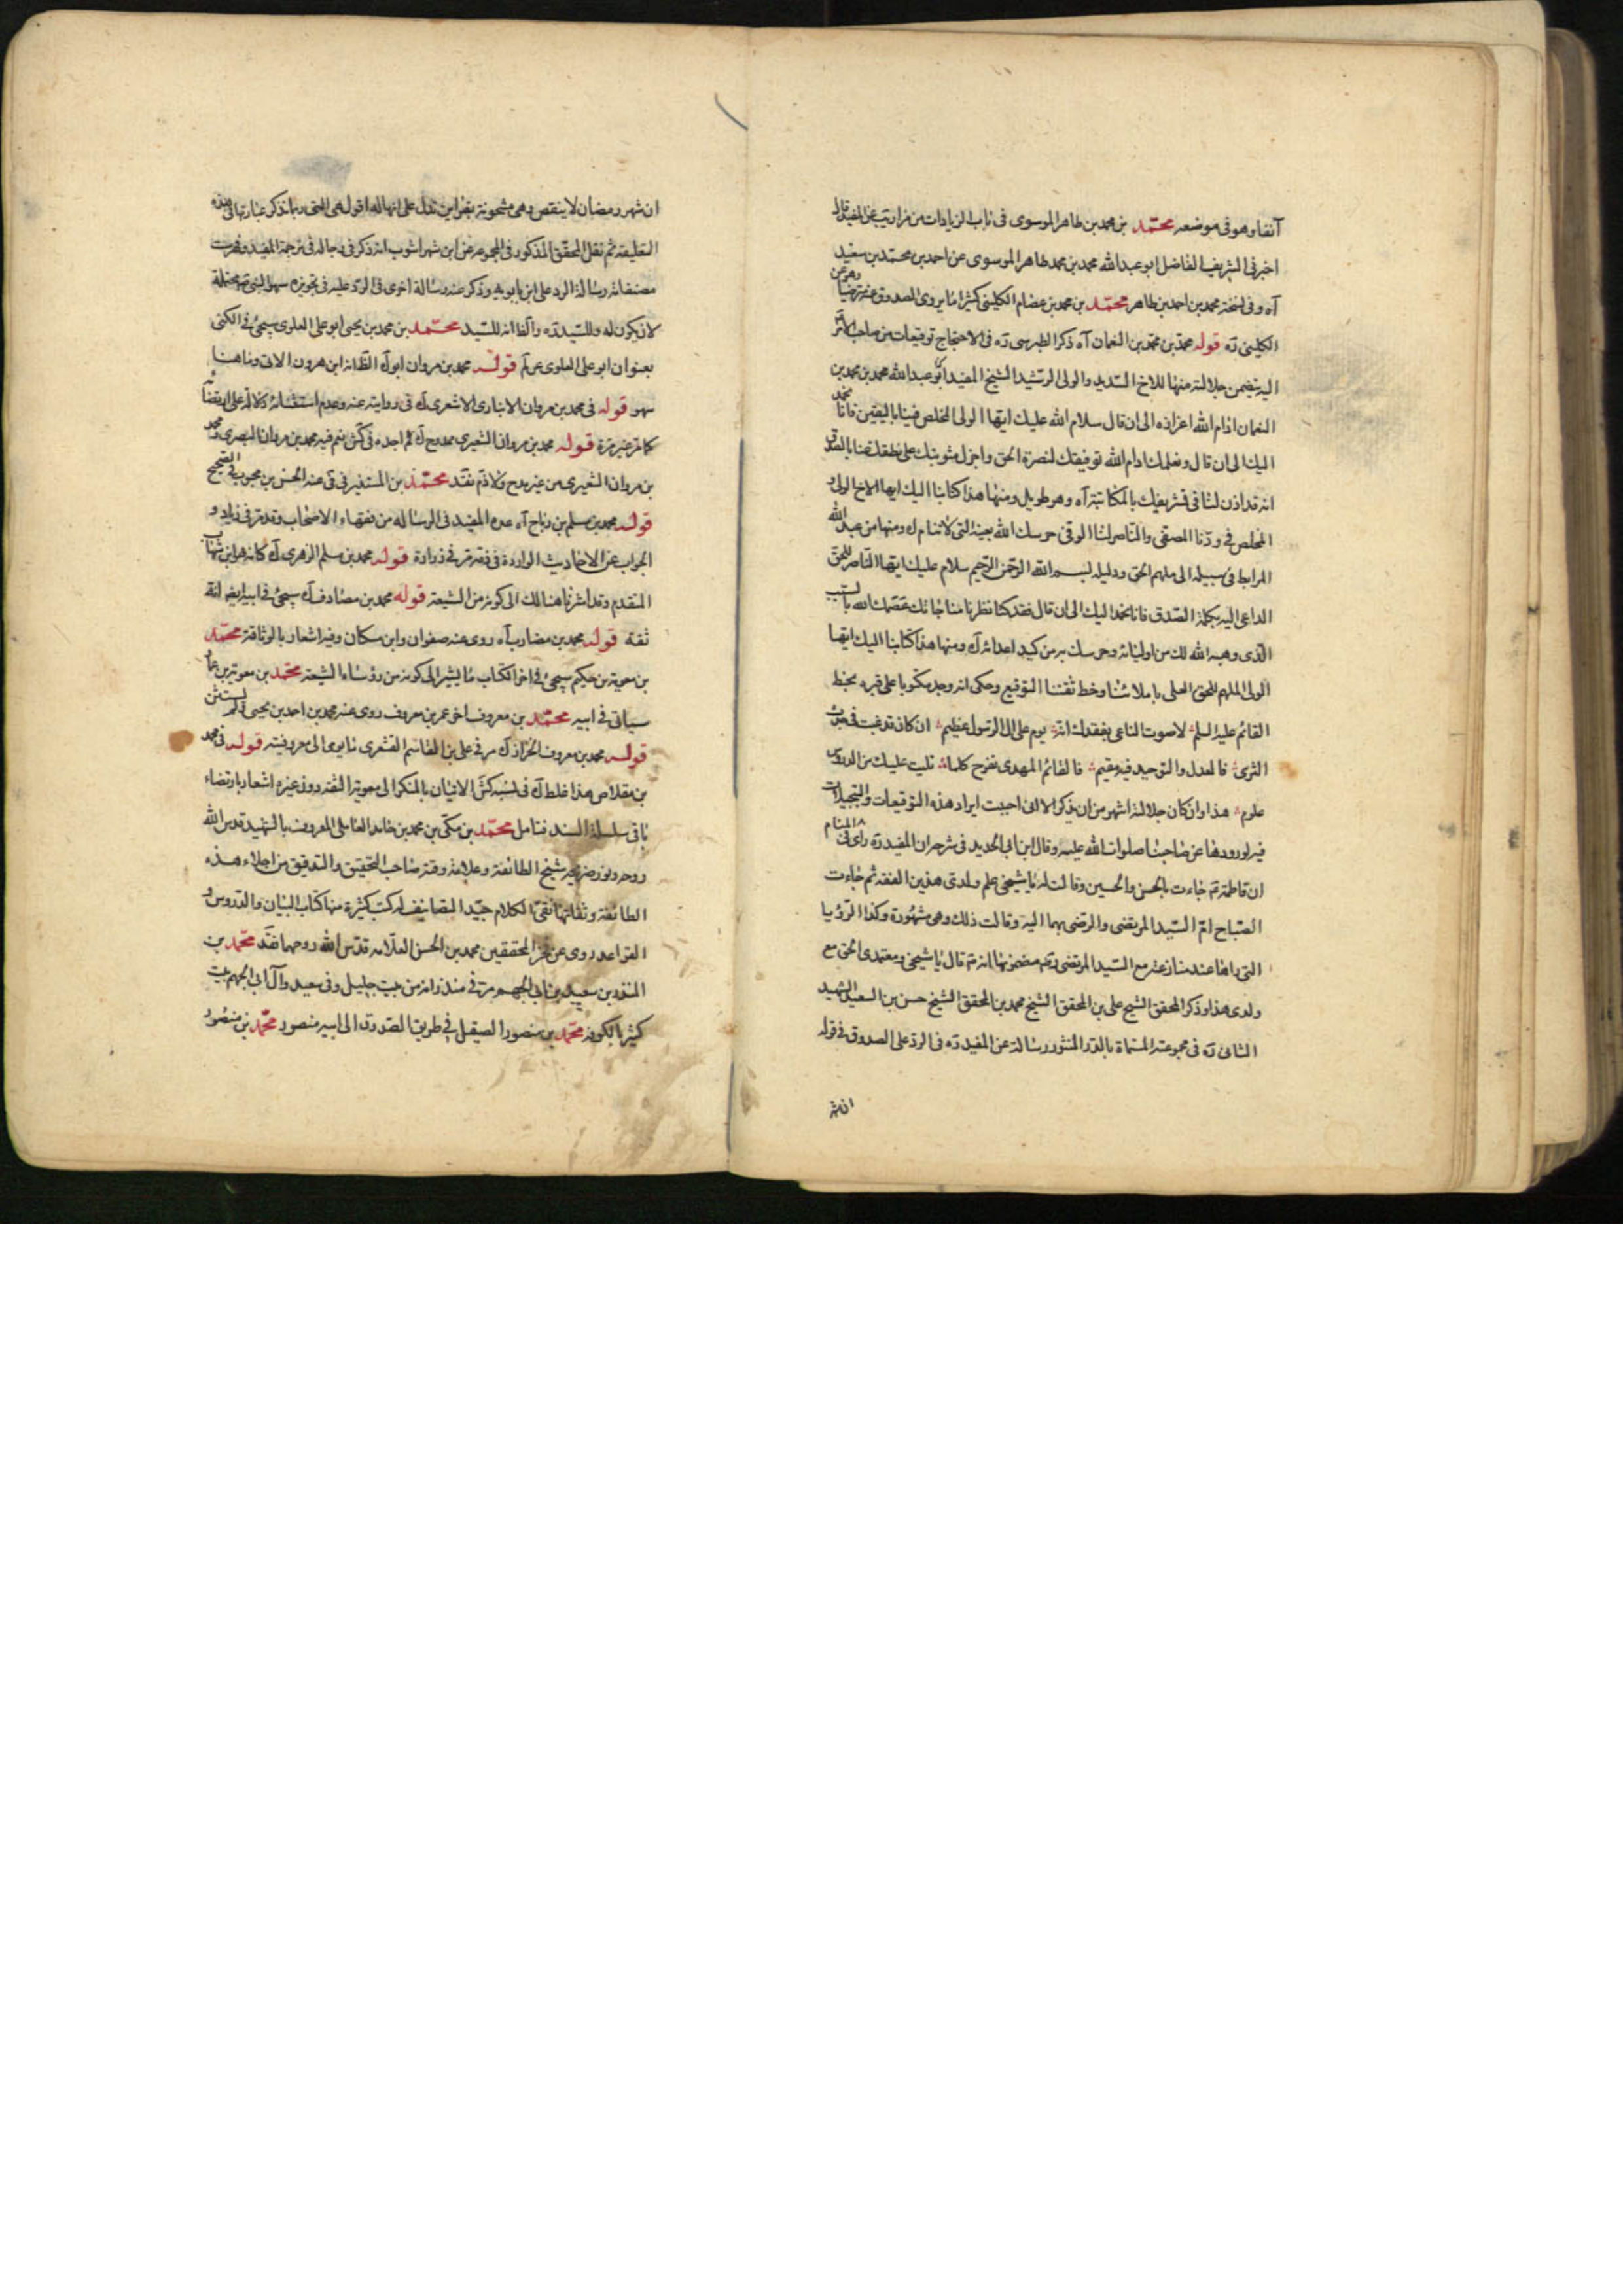 آنفا وهو فى موضعه محمّد بن محمد بن طاهر الموسوى فى باب الزيادات من مزار يب عن المفيد قال
اخبرنى الشريف الفاضل ابو عبد الله محمد بن محمد طاهر الموسوى عن احمد بن محمّد بن سعيد
آه وفى نسخة محمد بن احمد بن طاهر محمّد بن محمد بن عصام الكلينى كثيرا ما يروى الصدوق عنه مترضيا وهو عن
الكلينى ره قوله محمّد بن محمّد بن النعمان آه ذكر الطبرسى ره فى الاحتجاج توقيعات من صاحب الامر
اليه يتضمن جلالته منها للاخ السّديد والولى الرّشيد الشيخ المفيد ابى عبد الله محمد بن محمد بن
النعمان ادام الله اعزازه الى ان قال سلام الله عليك ايها الولى المخلص فينا باليقين فانا نحمد
اليك الى ان قال ونعلمك ادام الله توفيقك لنصرة الحق واجزل مثوبتك على نطقك عنا بالصدق
انه قد اذن لنا فى تشريفك بالمكاتبة آه وهو طويل ومنها هذا كتابنا اليك ايها الاخ الولى و
المخلص فى ودّنا الصفى والنّاصر لنا الوفى حرسك الله بعينه التى لا تنام ك ومنها من عبد الله
المرابط فى سبيله الى ملهم الحق ودليله بسم الله الرّحمن الرّحيم سلام عليك ايها النّاصر للحق
الداعى اليه بكلمة الصّدق فانا نحمد اليك الى ان قال فقد كنا نظرنا مناجاتك عصمك الله بالسبب
الّذى وهبه الله لك من اوليائه وحرسك به من كيد اعدائه ك ومنها هذا كتابنا اليك ايها
الولى الملهم للحق العلى باملائنا وخط ثقتنا التوقيع وحكى انه وجد مكتوبا على قبره بخط
القائم عليه السلم لا صوت الناعى بفقدك انه يوم على ال الرسول عظيم ان كان قد غيبت فى جدث
الثرى فالعدل والتوحيد فيه مقيم فالقائم المهدى يفرح كلما تليت عليك من الدروس
علوم هذا وان كان جلالته اشهر من ان يذكر الا انى احببت ايراد هذه التوقيعات والتبجيلات
فيه لورودها عن صاحبنا صلوات الله عليه وقال ابن ابى الحديد فى شرحه ان المفيد ره راى فى المنام
ان فاطمة ع جاءت بالحسن والحسين وقالت له يا شيخى علم ولدى هذين الفقه ثم جاءت
الصّباح امّ السّيد المرتضى والرضى بهما اليه وقالت ذلك وهى مشهورة وكذا الرّؤيا
التى راها عند منازعته مع السّيد المرتضى ره مضمونها انه ع قال يا شيخى ومعتمدى الحق مع
ولدى هذا وذكر المحقق الشيخ على بن المحقق الشيخ محمد بن المحقق الشيخ حسن بن السعيد الشهيد
الثانى ره فى مجموعته المسمّاة بالدّر المنثور رسالة عن المفيد ره فى الرد على الصدوق فى قوله
ان شهر
ان شهر رمضان لا ينقص وهى مشحونة بقراين تدل على انها له اقول هى التى ربما نذكر عباراتها فى هذه
التعليقة ثم نقل المحقق المذكور فى المجموعة عن ابن شهراشوب انه ذكر فى رجاله فى ترجمة المفيد وفهرست
مصنفاته رسالة الرد على ابن بابويه وذكر عنه رسالة اخرى فى الردّ عليه فى تجويزه سهو النبى محتملة
لان يكون له وللسّيد ره والظ انه للسّيد محمّد بن محمد بن يحيى ابو على العلوى سيجئ فى الكنى
بعنوان ابو على العلوى قوله محمد بن مروان ابوك الظ انه ابن هرون الاتى وما هنا
سهو قوله فى محمد بن مروان الانبارى الاشعرى ك فى روايته عنه وعدم استثنائه دلالة على ارتضائه
كما مر غير مرة قوله محمد بن مروان الشعيرى ممدوح ك لم اجده فى كش نعم فيه محمد بن مروان البصرى ومحمد
بن مروان الشعيرى من غير مدح ولا ذم نقد محمّد بن المستنير فى فى عنه الحسن بن محبوب فى الصحيح
قوله محمد بن مسلم بن رباح آه عده المفيد فى الرسالة من فقهاء الاصحاب وقد مر فى زياد و
الجواب عن الاحاديث الواردة فى ذمه مر فى زرارة قوله محمد بن مسلم الزهرى ك كانه هو ابن شهاب
المتقدم وقد اشرنا هنالك الى كونه من الشيعة قوله محمد بن مصادف ك سيجئ فى ابيه ايضا انه
ثقة قوله محمد بن مضارب آه روى عنه صفوان وابن مسكان وفيه اشعار بالوثاقة محمّد
بن معوية بن حكيم سيجئ فى اخر الكتاب ما يشير الى كونه من رؤساء الشيعة محمّد بن معوية بن عمار
سياتى فى ابيه محمّد بن معروف اخى عمر بن معروف روى عنه محمد بن احمد بن يحيى ولم يستثن
قوله محمد بن معروف الخزاز ك مر فى على بن القاسم القشعرى ما يومى الى معروفيته قوله فى محمد
بن مقلاص هذا غلط ك فى نسبة كش الاتيان بالمنكر الى معوية الثقه دون غيره اشعار بارتضاء
باقى سلسلة السند فتامل محمّد بن مكى بن محمد بن حامد العاملى المعروف بالشهيد قدس الله
روحه ونور ضريحه شيخ الطائفة وعلامة وقته صاحب التحقيق والتدقيق من اجلاء هذه
الطائفة وثقاتها نقىّ الكلام جيّد التصانيف له كتب كثيرة منها كتاب البيان والدّروس و
القواعد روى عن فخر المحققين محمد بن الحسن العلّامه قدّس الله روحهما نقد محمّد بن
المنذر بن سعيد بن ابى الجهم مر فى منذر انه من بيت جليل وفى سعيد وآل ابى الجهم بيت
كثير بالكوفه محمّد بن منصور الصيقل فى طريق الصّدوق الى ابيه منصور محمّد بن منصور